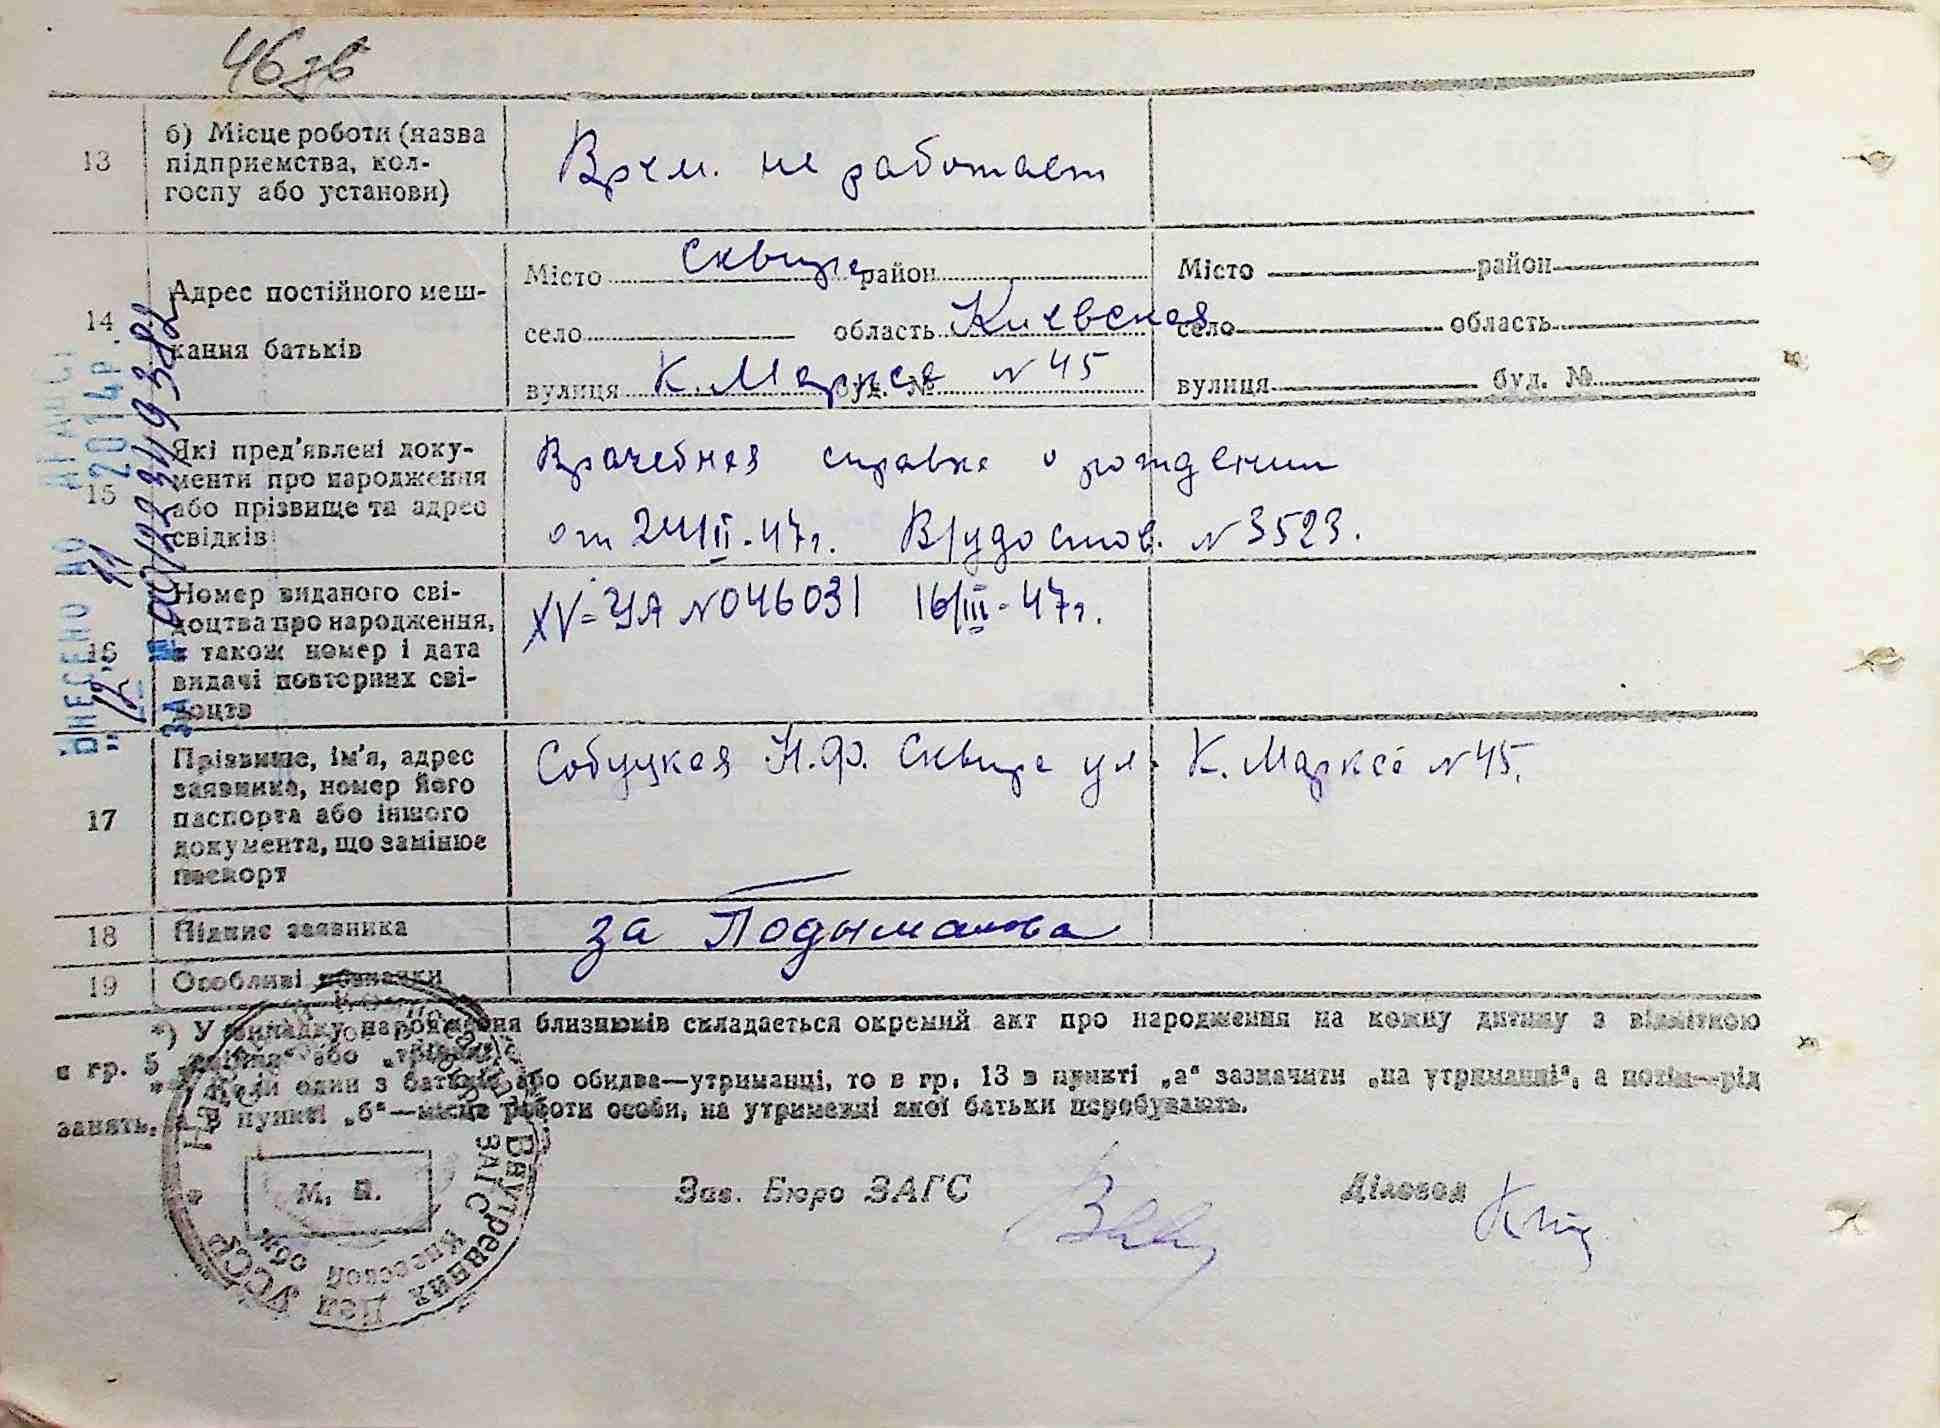 46 зв
13
б) Місце роботи (назва
підприємства, кол-
госпу або установи)
Врем. не работает
14
Адрес постійного меш-
кання батьків
Місто Сквира район
село область Киевская
вулиця К. Маркса буд. № N 45
Місто район
село область
вулиця буд. №
15
Які пред'явлені доку-
менти про народження
або прізвище та адрес
свідків
Врачебная справка о рождении
от 24/II-47г. В/удостов. N 3523.
16
Номер виданого сві-
доцтва про народження,
а також номер і дата
видачі повторних сві-
доцтв
XV-УЯ N046031 16/III-47г.
17
Прізвище, ім'я, адрес
заявника, номер його
паспорта або іншого
документа, що замінює
паспорт
Собуцкая Н.Ф. Сквира ул. К. Маркса N 45.
18
Підпис заявника
за
19
Особливі позначки
*) У випадку народження близнюків складається окремий акт про народження на кожну дитину з відміткою
в гр. 5 „двійня“ або „трійня“
Коли один з батьків або обидва—утриманці, то в гр. 13 в пункті „а“ зазначити „на утриманні“, а потім—рід
занять, а в пункті „б“—місце роботи особи, на утриманні якої батьки перебувають.
М. П.
Зав. Бюро ЗАГС
Діловод
Внутренних Дел УССР
ЗАГС Киевской обл.
ВНЕСЕНО ДО ДРАЦС
„12“ 11 2014р.
ЗА №